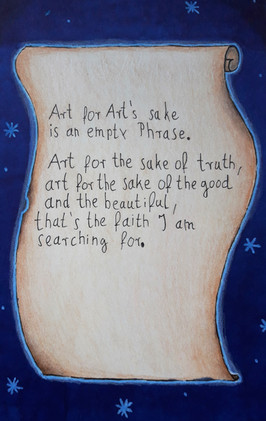 Art for Art's sake
is an empty Phrase.
Art for the sake of truth,
art for the sake of the good
and the beautiful,
that's the faith I am
searching for.